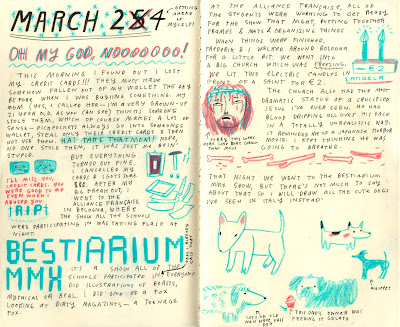 MARCH 24
GETTING
AHEAD OF
MYSELF!
OH MY GOD, NOOOOOOO!
THIS MORNING I FOUND OUT I LOST
MY CREDIT CARDS!!! THEY MUST HAVE
SOMEHOW FALLEN OUT OF MY WALLET THE DAY
BEFORE WHEN I WAS PUTTING TOGETHER MY
MOM (YES, I CALLED HER—I'M A VERY GROWN-UP
21 YEAR OLD, AS YOU CAN SEE) THINKS SOMEONE
STOLE THEM, WHICH OF COURSE MAKES A LOT OF
SENSE—PICKPOCKETS ALWAYS GO INTO SOMEONE'S
WALLET, STEAL ONLY THEIR CREDIT CARDS & THEN
NOT USE THEM. HA! TAKE THAT, MOM! NOPE,
NO ONE STOLE THEM, IT'S JUST ME BEIN'
STUPID.
I'LL MISS YOU,
CREDIT CARDS. YOU
WERE GOOD TO ME
EVEN WHEN I
ABUSED YOU.
R.I.P.
BUT EVERYTHING
TURNED OUT FINE.
I CANCELLED MY
CARDS & I GOT SOME
$$$. AFTER MY
BIG FREAK OUT, I
WENT TO THE
ALLIANCE FRANÇAISE
IN BOLOGNA, WHERE
THE SHOW ALL THE SCHOOLS
WERE PARTICIPATING IN WAS TAKING PLACE AT
NIGHT.
BESTIARIUM
MMX
IT'S A SHOW ALL OF THE
SCHOOLS PARTICIPATED IN. EVERYONE
DID ILLUSTRATIONS OF BEASTS,
MYTHICAL OR REAL. I DID ONE OF A FOX
LOOKING AT DIRTY MAGAZINES—A TEENAGE
FOX.
AT THE ALLIANCE FRANÇAISE, ALL OF
THE STUDENTS WERE WORKING TO GET READY
FOR THE SHOW THAT NIGHT, PUTTING TOGETHER
FRAMES & MATS & ORGANIZING THINGS
WHEN THINGS WERE FINISHED,
FREDERIK & I WALKED AROUND BOLOGNA
FOR A LITTLE BIT. WE WENT INTO
A BIG CHURCH WHICH WAS FREEZING.
WE LIT TWO ELECTRIC CANDLES IN
FRONT OF A SAINT FOR €2.
€2
CANDELA
THE CHURCH ALSO HAD THE MOST
DRAMATIC STATUE OF A CRUCIFIED
JESUS I'VE EVER SEEN. HE HAD
BLOOD DRIPPING ALL OVER HIS FACE
IN A TOTALLY UNREALISTIC WAY.
IT REMINDED ME OF A JAPANESE HORROR
MOVIE. I KEPT THINKING HE WAS
GOING TO BREATHE.
THAT NIGHT WE WENT TO THE BESTIARIUM
MMX SHOW, BUT THERE'S NOT MUCH TO SAY
ABOUT THAT SO I WILL DRAW ALL THE CUTE DOGS
I'VE SEEN IN ITALY INSTEAD.
WHIPPET
THIS ONE'S OWNER WAS
FEEDING IT GELATO